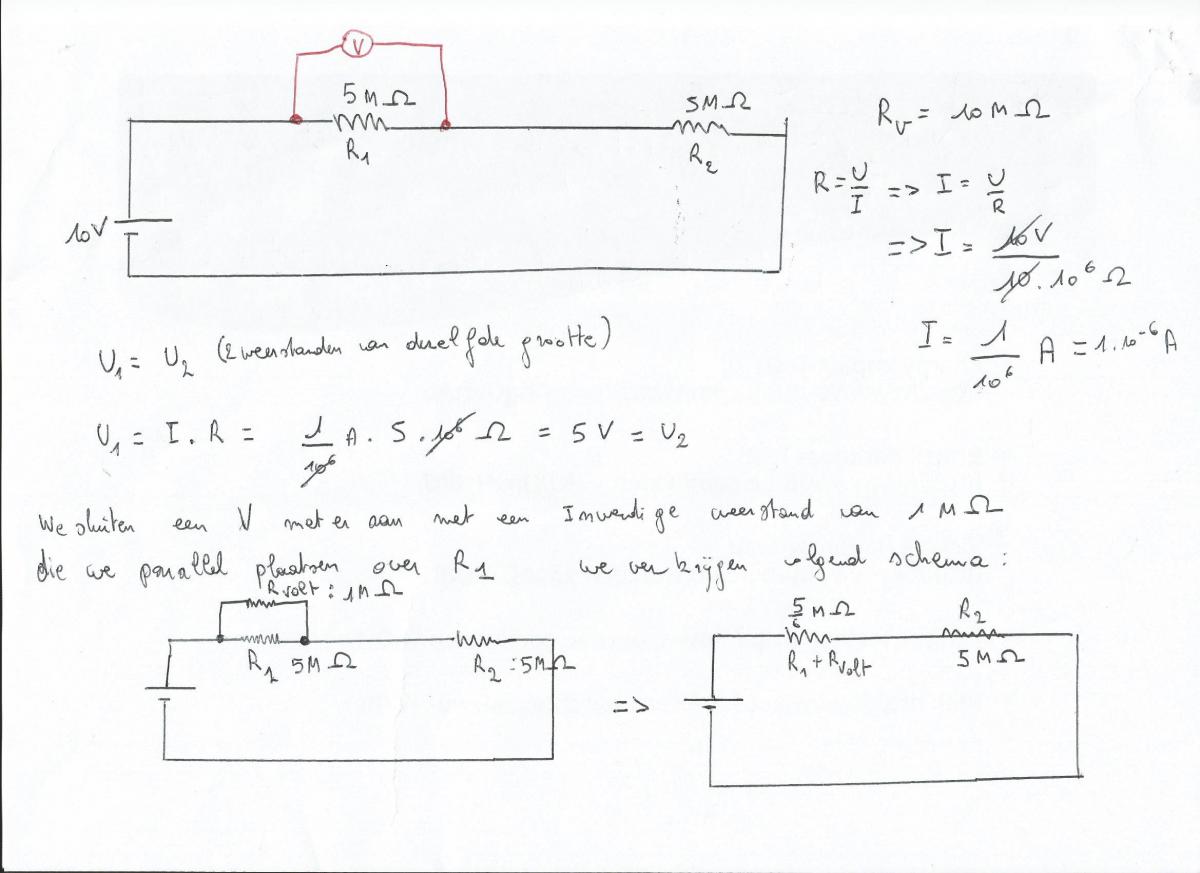 V
5 M Ω
R1
5 M Ω
R2
10V
Rv = 10 M Ω
R = U/I => I = U/R
=> I = 10 V / 10 . 10^6 Ω
I = 1/10^6 A = 1.10^-6 A
U1 = U2 (2 weerstanden van dezelfde grootte)
U1 = I . R = 1/10^6 A . 5 . 10^6 Ω = 5 V = U2
We sluiten een V meter aan met een Inwendige weerstand van 1 M Ω
die we parallel plaatsen over R1 we verkrijgen volgend schema :
Rvolt : 1M Ω
R1 5 M Ω
R2 : 5M Ω
=>
5/6 M Ω
R1 + Rvolt
R2
5 M Ω